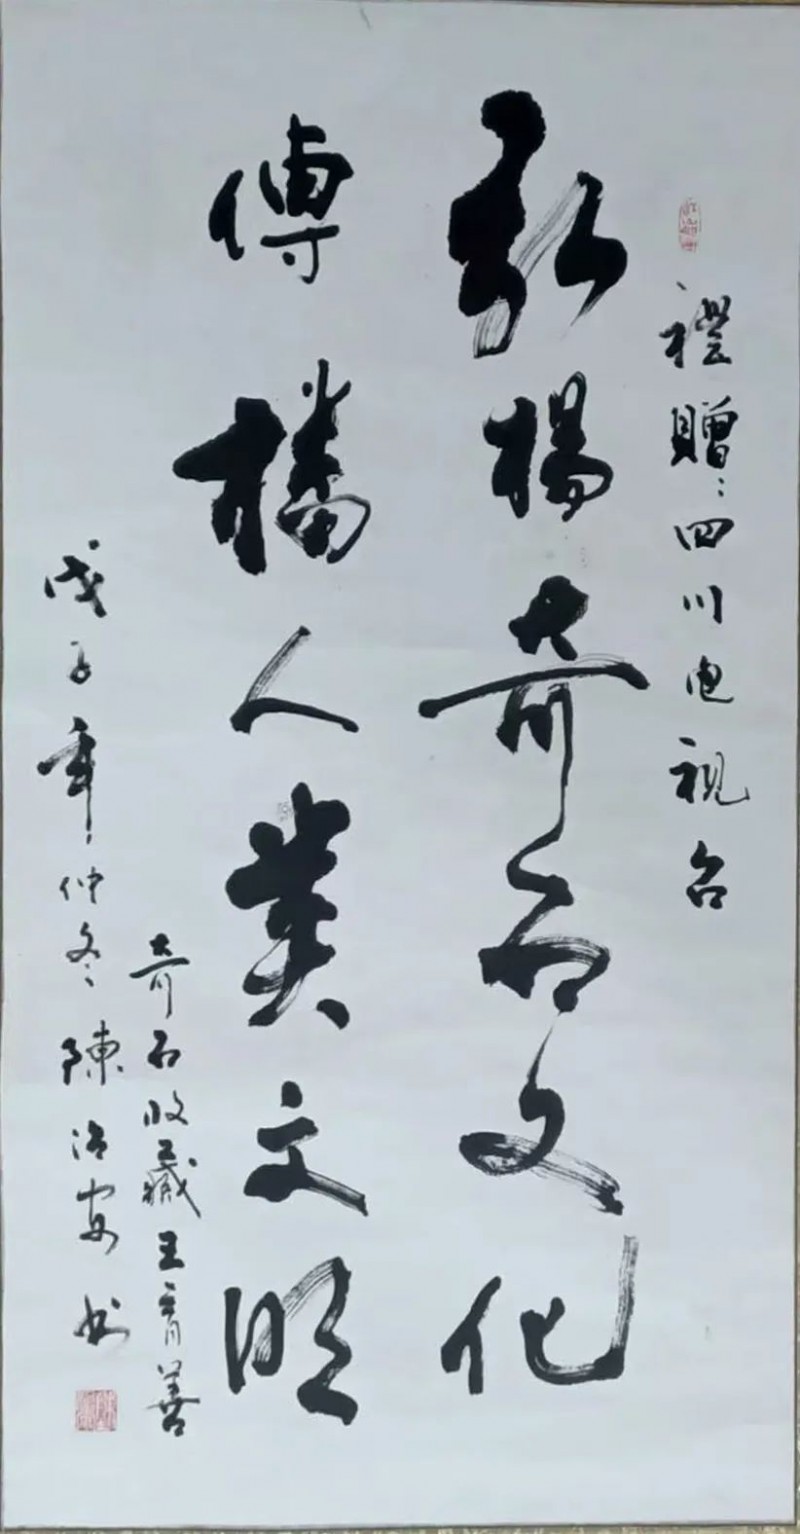 禮贈:四川电视台
弘楊奇石文化
傳播人类文明
奇石收藏王青善
戊子年仲冬陳治安书